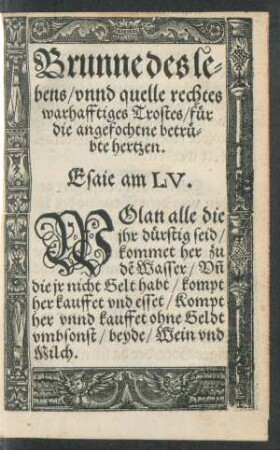 Brunne des le-
bens/vnnd quelle rechtes
warhafftiges Trostes/für
die angefochtne betrü-
bte hertzen.
Esaie am LV.
WOlan alle die
jhr dürstig seid/
kommet her zu
dē Wasser/Vn̄
die jr nicht Gelt habt/kompt
her kauffet vnd esset/Kompt
her vnnd kauffet ohne Geldt
vmbsonst/beyde/Wein vnd
Milch.